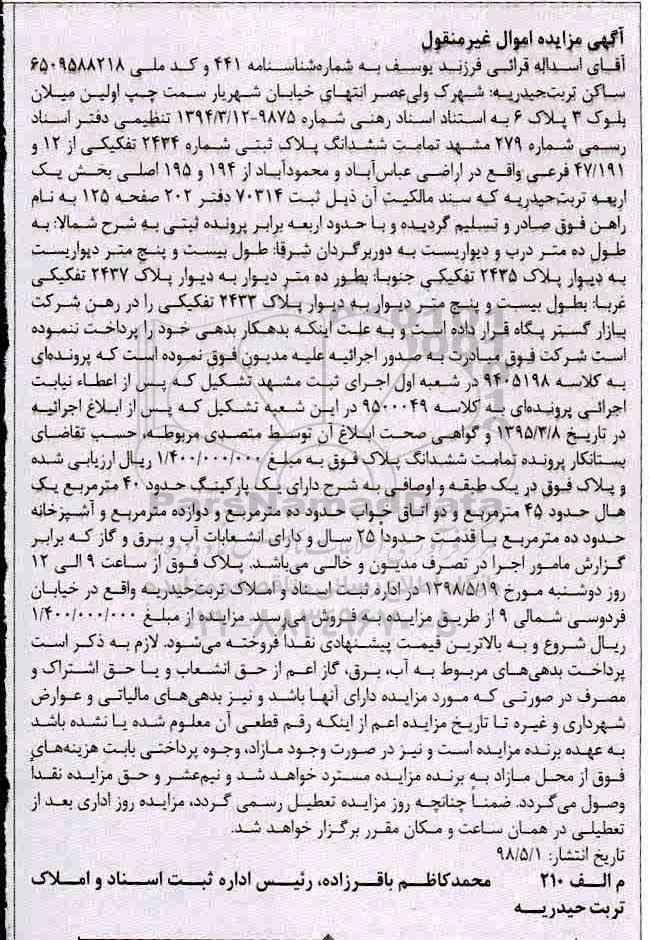 آگهی مزایده اموال غیرمنقول
آقای اسداله قرائی فرزند یوسف به شماره‌شناسنامه ۴۴۱ و کد ملی ۶۵۰۹۵۸۸۲۱۸
ساکن تربت‌حیدریه: شهرک ولی‌عصر انتهای خیابان شهریار سمت چپ اولین میلان
بلوک ۳ پلاک ۶ به استناد اسناد رهنی شماره ۹۸۷۵-۱۳۹۴/۳/۱۲ تنظیمی دفتر اسناد
رسمی شماره ۲۷۹ مشهد تمامت ششدانگ پلاک ثبتی شماره ۲۴۳۴ تفکیکی از ۱۲ و
۴۷/۱۹۱ فرعی واقع در اراضی عباس‌آباد و محمودآباد از ۱۹۴ و ۱۹۵ اصلی بخش یک
اربعه تربت‌حیدریه که سند مالکیت آن ذیل ثبت ۷۰۳۱۴ دفتر ۲۰۲ صفحه ۱۲۵ به نام
راهن فوق صادر و تسلیم گردیده و با حدود اربعه برابر پرونده ثبتی به شرح شمالا: به
طول ده متر درب و دیواریست به دوربرگردان شرقا: طول بیست و پنج متر دیواریست
به دیوار پلاک ۲۴۳۵ تفکیکی جنوبا: بطور ده متر دیوار به دیوار پلاک ۲۴۳۷ تفکیکی
غربا: بطول بیست و پنج متر دیوار به دیوار پلاک ۲۴۳۳ تفکیکی را در رهن شرکت
بازار گستر پگاه قرار داده است و به علت اینکه بدهکار بدهی خود را پرداخت ننموده
است شرکت فوق مبادرت به صدور اجرائیه علیه مدیون فوق نموده است که پرونده‌ای
به کلاسه ۹۴۰۵۱۹۸ در شعبه اول اجرای ثبت مشهد تشکیل که پس از اعطاء نیابت
اجرائی پرونده‌ای به کلاسه ۹۵۰۰۰۴۹ در این شعبه تشکیل که پس از ابلاغ اجرائیه
در تاریخ ۱۳۹۵/۳/۸ و گواهی صحت ابلاغ آن توسط متصدی مربوطه، حسب تقاضای
بستانکار پرونده تمامت ششدانگ پلاک فوق به مبلغ ۱/۴۰۰/۰۰۰/۰۰۰ ریال ارزیابی شده
و پلاک فوق در یک طبقه و اوصافی به شرح دارای یک پارکینگ حدود ۴۰ مترمربع یک
هال حدود ۴۵ مترمربع و دو اتاق خواب حدود ده مترمربع و دوازده مترمربع و آشپزخانه
حدود ده مترمربع با قدمت حدودا ۲۵ سال و دارای انشعابات آب و برق و گاز که برابر
گزارش مامور اجرا در تصرف مدیون و خالی می‌باشد. پلاک فوق از ساعت ۹ الی ۱۲
روز دوشنبه مورخ ۱۳۹۸/۵/۱۹ در اداره ثبت اسناد و املاک تربت‌حیدریه واقع در خیابان
فردوسی شمالی ۹ از طریق مزایده به فروش می‌رسد. مزایده از مبلغ ۱/۴۰۰/۰۰۰/۰۰۰
ریال شروع و به بالاترین قیمت پیشنهادی نقداً فروخته می‌شود. لازم به ذکر است
پرداخت بدهی‌های مربوط به آب، برق، گاز اعم از حق انشعاب و یا حق اشتراک و
مصرف در صورتی که مورد مزایده دارای آنها باشد و نیز بدهی‌های مالیاتی و عوارض
شهرداری و غیره تا تاریخ مزایده اعم از اینکه رقم قطعی آن معلوم شده یا نشده باشد
به عهده برنده مزایده است و نیز در صورت وجود مازاد، وجوه پرداختی بابت هزینه‌های
فوق از محل مازاد به برنده مزایده مسترد خواهد شد و نیم‌عشر و حق مزایده نقداً
وصول می‌گردد. ضمناً چنانچه روز مزایده تعطیل رسمی گردد، مزایده روز اداری بعد از
تعطیلی در همان ساعت و مکان مقرر برگزار خواهد شد.
تاریخ انتشار: ۹۸/۵/۱
م الف ۲۱۰ محمدکاظم باقرزاده، رئیس اداره ثبت اسناد و املاک
تربت حیدریه
ParsNamadData